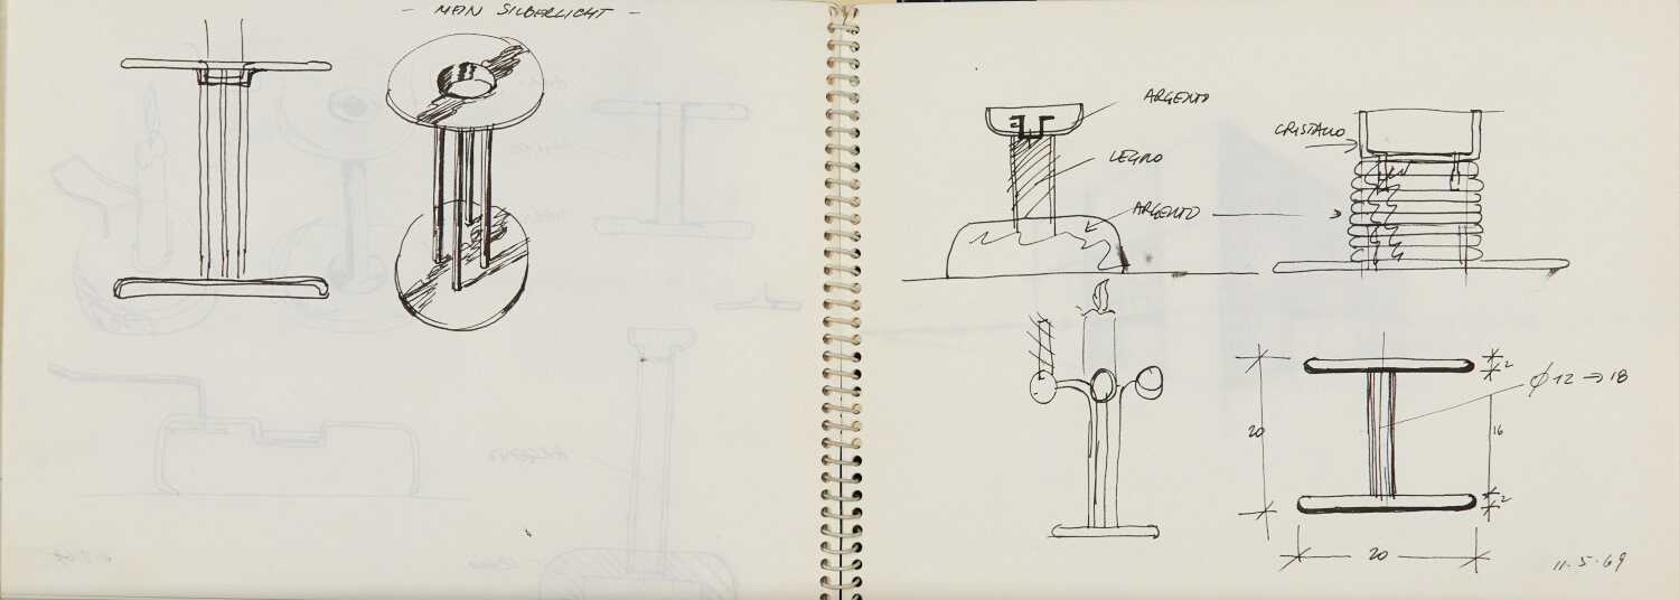 - MEIN SILBERLICHT -
ARGENTO
LEGNO
ARGENTO
CRISTALLO
20
2
Ø 12 → 18
16
2
20
11.5.69